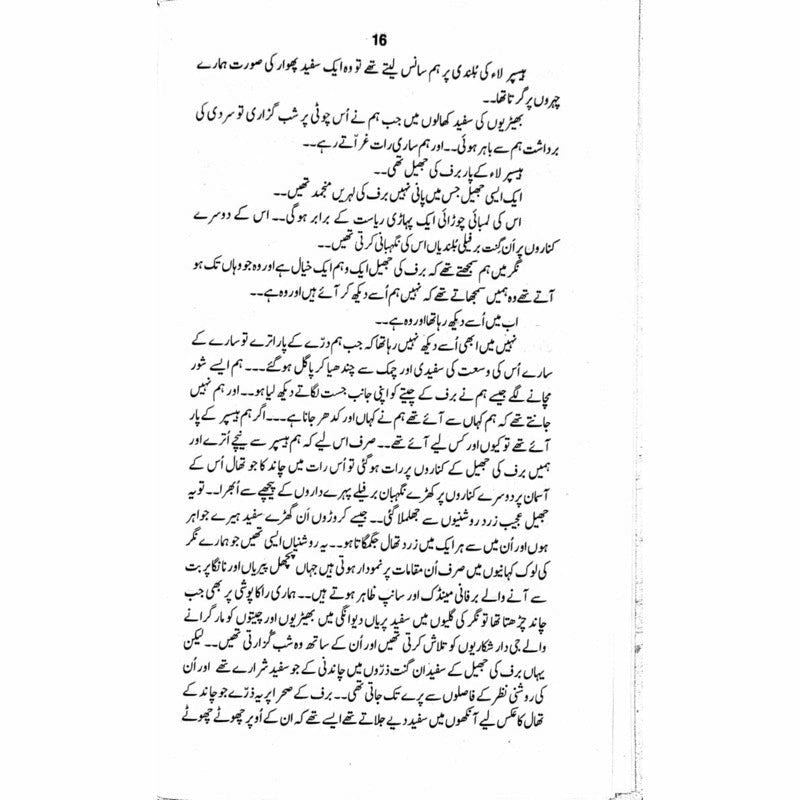 16
ہیسپر لاء کی بُلندی پر ہم سانس لیتے تھے تو وہ ایک سفید پھوار کی صورت ہمارے
چہروں پر گرتا تھا۔۔
بھیڑیوں کی سفید کھالوں میں جب ہم نے اُس چوٹی پر شب گزاری تو سردی کی
برداشت ہم سے باہر ہوئی۔۔ اور ہم ساری رات غرّاتے رہے۔۔
ہیسپر لاء کے پار برف کی جھیل تھی۔۔
ایک ایسی جھیل جس میں پانی نہیں برف کی لہریں منجمد تھیں۔۔
اس کی لمبائی چوڑائی ایک پہاڑی ریاست کے برابر ہوگی۔۔ اس کے دوسرے
کناروں پر اَن گنت برفیلی بُلندیاں اس کی نگہبانی کرتی تھیں۔۔
نگر میں ہم سمجھتے تھے کہ برف کی جھیل ایک وہم ایک خیال ہے اور وہ جو وہاں تک ہو
آتے تھے وہ ہمیں سمجھاتے تھے کہ نہیں ہم اُسے دیکھ کر آئے ہیں اور وہ ہے۔۔
اب میں اُسے دیکھ رہا تھا اور وہ ہے۔۔
نہیں میں ابھی اُسے دیکھ نہیں رہا تھا کہ جب ہم درّے کے پار اترے تو سارے کے
سارے اُس کی وسعت کی سفیدی اور چمک سے چندھیا کر پاگل ہو گئے۔۔۔ ہم ایسے شور
مچانے لگے جیسے ہم نے برف کے چیتے کو اپنی جانب جست لگاتے دیکھ لیا ہو۔۔ اور ہم نہیں
جانتے تھے کہ ہم کہاں سے آئے تھے ہم نے کہاں اور کدھر جانا ہے۔۔۔ اگر ہم ہیسپر کے پار
آئے تھے تو کیوں اور کس لیے آئے تھے۔۔ صرف اس لیے کہ ہم ہیسپر سے نیچے اُترے اور
ہمیں برف کی جھیل کے کناروں پر رات ہو گئی تو اُس رات میں چاند کا جو تھال اُس کے
آسمان پر دوسرے کناروں پر کھڑے نگہبان برفیلے پہرے داروں کے پیچھے سے اُبھرا۔۔ تو یہ
جھیل عجیب زرد روشنیوں سے جھلملا گئی۔۔ جیسے کروڑوں اَن گھڑے سفید ہیرے جواہر
ہوں اور اُن میں سے ہر ایک میں زرد تھال جگمگاتا ہو۔۔ یہ روشنیاں ایسی تھیں جو ہمارے نگر
کی لوک کہانیوں میں صرف اُن مقامات پر نمودار ہوتی ہیں جہاں پچھل پیریاں اور نانگا پربت
سے آنے والے برفانی مینڈک اور سانپ ظاہر ہوتے ہیں۔۔ ہماری راکا پوشی پر بھی جب
چاند چڑھتا تھا تو نگر کی گلیوں میں سفید پریاں دیوانگی میں بھیڑیوں اور چیتوں کو مار گرانے
والے جی دار شکاریوں کو تلاش کرتی تھیں اور اُن کے ساتھ وہ شب گزارتی تھیں۔۔ لیکن
یہاں برف کی جھیل کے سفید اَن گنت ذرّوں میں چاندنی کے جو سفید شرارے تھے اور اُن
کی روشنی نظر کے فاصلوں سے پرے تک جاتی تھی۔۔ برف کے صحرا پر یہ ذرّے جو چاند کے
تھال کا عکس لیے آنکھوں میں سفید دیے جلاتے تھے ایسے تھے کہ ان کے اُوپر چھوٹے چھوٹے